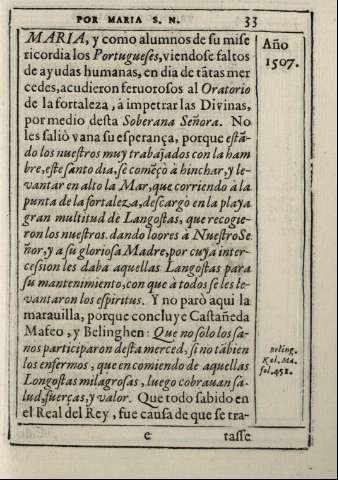 POR MARIA S. N. 33
MARIA, y como alumnos de su mise
ricordia los Portugueses, viendose faltos
de ayudas humanas, en dia de tãtas mer
cedes, acudieron feruorosos al Oratorio
de la fortaleza, à impetrar las Divinas,
por medio desta Soberana Señora. No
les saliò vana su esperança, porque està
do los nuestros muy trabajados con la ham
bre, este santo dia, se começò à hinchar, y le-
vantar en alto la Mar, que corriendo à la
punta de la fortaleza, descargò en la playa
gran multitud de Langostas, que recogie-
ron los nuestros. dando loores à Nuestro Se-
ñor, y a su gloriosa Madre, por cuya inter-
cession les daba aquellas Langostas para
su mantenimiento, con que à todos se les le-
vantaron los espiritus. Y no parò aqui la
marauilla, porque concluye Castañeda
Mafeo, y Belinghen: Que no solo los sa-
nos participaron desta merced, si no tãbien
los enfermos, que en comiendo de aquellas
Langostas milagrosas, luego cobrauan sa-
lud, fuerças, y valor. Que todo sabido en
el Real del Rey, fue causa de que se tra-
e tasse
Año
1507.
Beling.
Kal. Ma.
fol. 452.